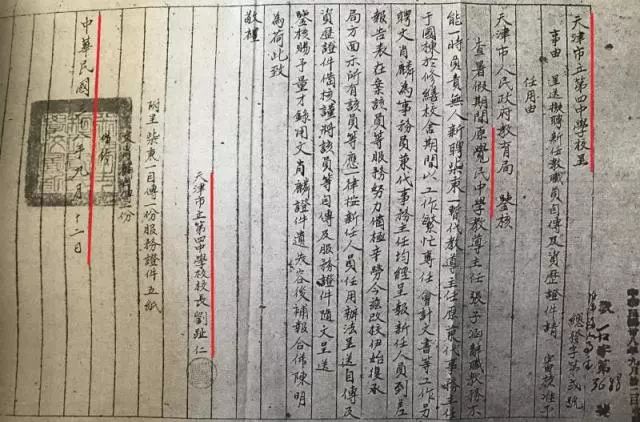 總發字第貳號
天津市立第四中學校呈
事由 逕送擬聘新任教職員自傳及資歷證件請 審核准予
任用由
天津市人民政府教育局 鑒核
查暑假期間原覺民中學教導主任張子涵辭職教務不
能一時負責無人新聘柴東一暫代教導主任原兼代事務主任
于國棟於修繕校舍期間以工作繁忙專任會計文書等工作另
聘文肖麟為事務員兼代事務主任均經呈報新任人員到差
報告表在案該員等服務努力備極辛勞今茲改校伊始復承
局方面示所有該員等應一律按新任人員任用辦法呈送自傳及
資歷證件備核謹將該員等自傳及服務證件隨文呈送
鑒核賜予量才錄用文肖麟證件遺失容後補報合併陳明
為荷此致
敬禮
天津市立第四中學校校長劉趾仁
附呈柴東一自傳一份服務證件五紙
中華民國 年九月十二日